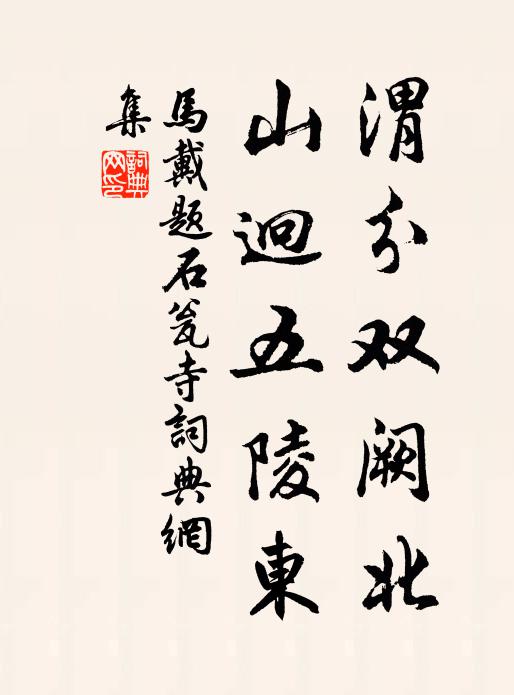 渭分双阙北
山迥五陵東
馬戴題石瓮寺詞典網
集
詞典
网印